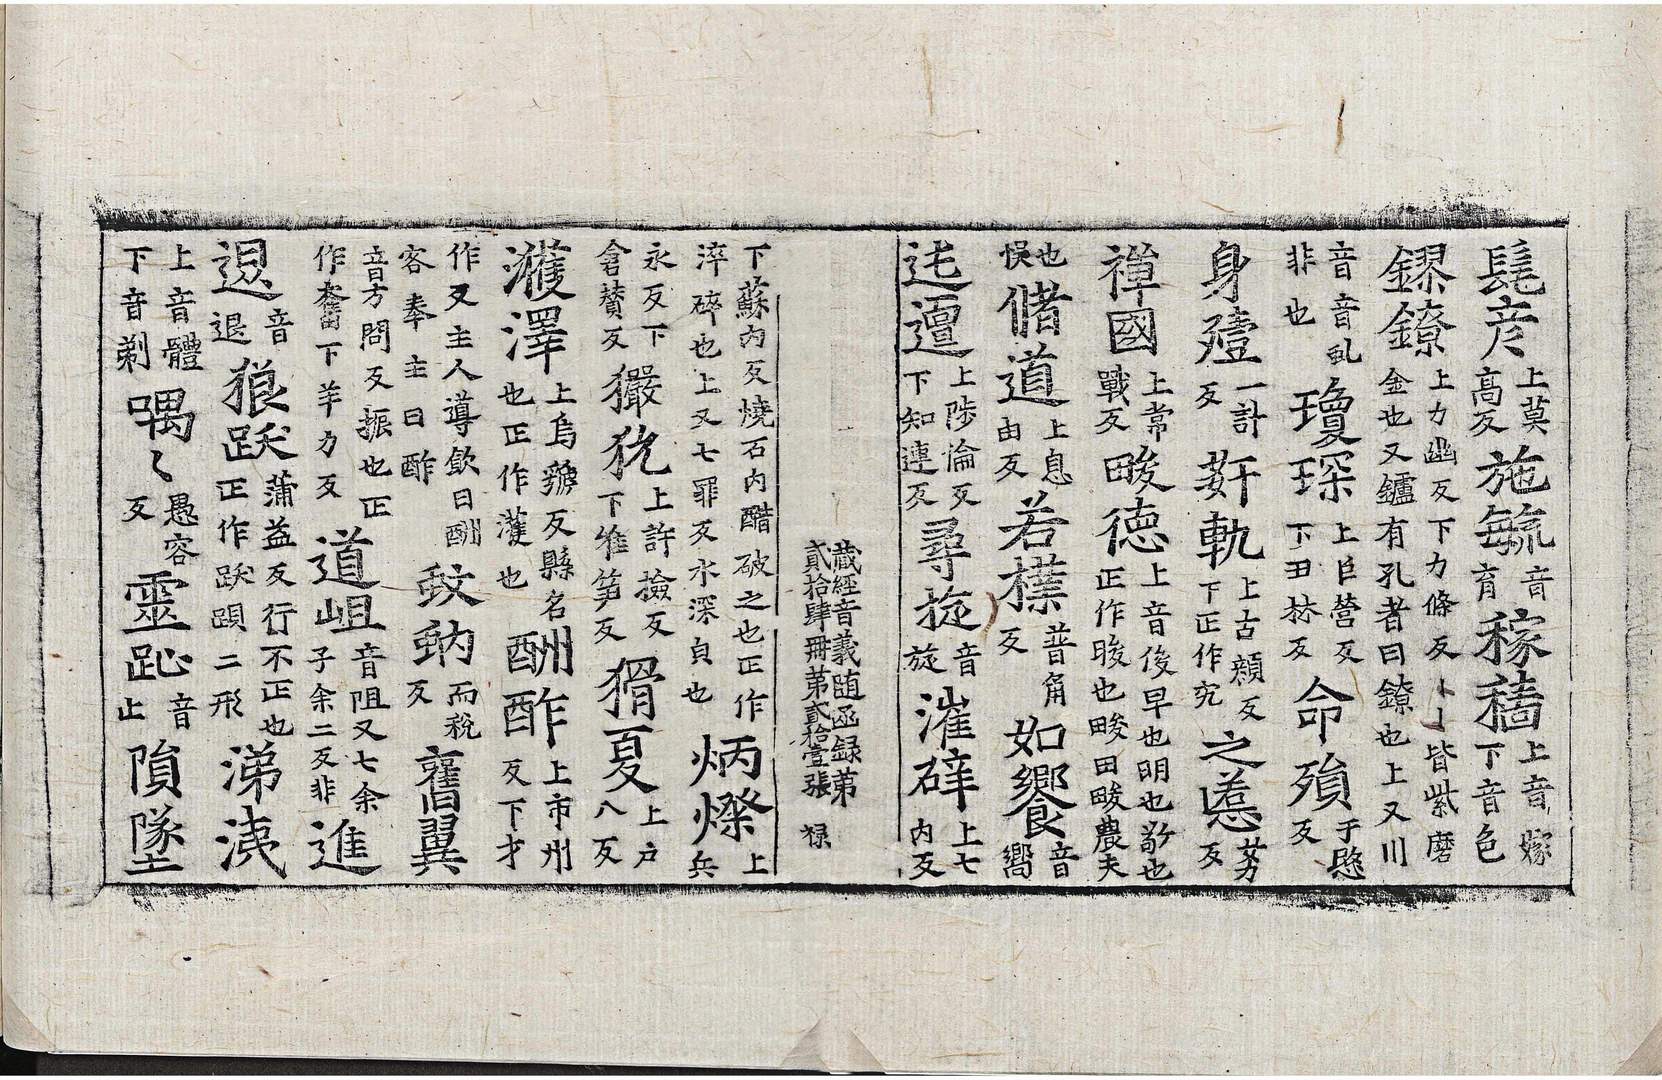 髦彦上莫高反施毓音育稼穡上音嫁下音色
鏐鐐上力幽反下力條反皆紫磨金也又鑪有孔者曰鐐也上又川
音音虬非也瓊琛上巨營反下丑林反命殞于愍反
身殪一計反奸軌上古顔反下正作宄之慝芳反
禪國上常戰反畯德上音俊早也明也敬也正作晙也畯田畯農夫
也悮偦道上息由反若樸普角反如饗音嚮
迍邅上陟倫反下知連反尋旋音旋漼碎上七内反
藏經音義随函録第貳拾肆冊第貳拾壹張 禄
下蘇内反燒石内醋破之也正作淬碎也上又七罪反水深皃也炳燦上兵
永反下倉賛反玁狁上許撿反下惟笋反猾夏上户八反
濩澤上烏虢反縣名也正作濩也酬酢上市州反下才
作反主人導飲曰酬客奉主曰酢蚊蚋而稅反舊翼
音方問反振也正作奮下羊力反道岨音阻又七余子余二反非進
退音退狼跋蒲益反行不正也正作跋䫙二形涕洟
上音體下音剃喁〻愚容反靈趾音止隕墜